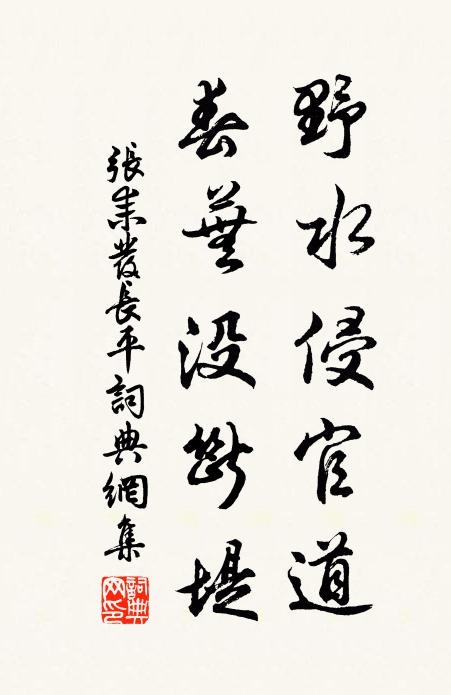 野水侵官道
春蕪没斷堤
張耒發長平詞典網集
詞典網印